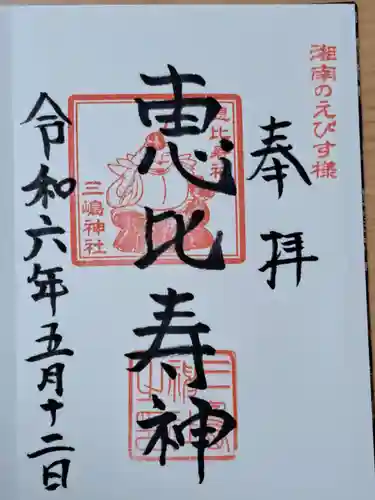 湘南のえびす様
奉拝
恵比寿神
恵比寿神
三嶋神社
令和六年五月十二日